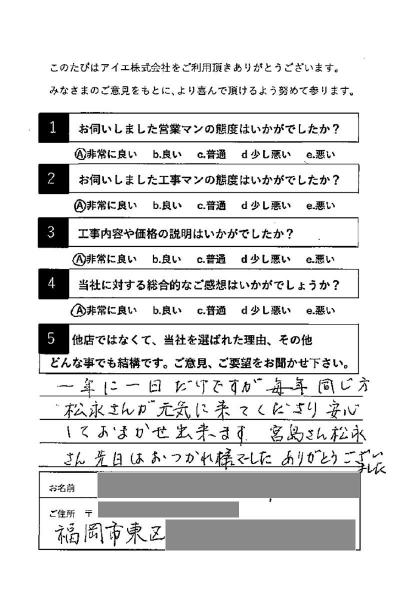 このたびはアイエ株式会社をご利用頂きありがとうございます。
みなさまのご意見をもとに、より喜んで頂けるよう努めて参ります。
1 お伺いしました営業マンの態度はいかがでしたか?
Ⓐ非常に良い b.良い c.普通 d少し悪い e.悪い
2 お伺いしました工事マンの態度はいかがでしたか?
Ⓐ非常に良い b.良い c.普通 d少し悪い e.悪い
3 工事内容や価格の説明はいかがでしたか?
Ⓐ非常に良い b.良い c.普通 d少し悪い e.悪い
4 当社に対する総合的なご感想はいかがでしょうか?
Ⓐ非常に良い b.良い c.普通 d少し悪い e.悪い
5 他店ではなくて、当社を選ばれた理由、その他
どんな事でも結構です。ご意見、ご要望をお聞かせ下さい。
一年に一日だけですが毎年同じ方
松永さんが元気に来てくださり安心
しておまかせ出来ます 宮島さん松永
さん先日はおつかれ様でした ありがとうござい
ました
お名前
ご住所 〒
福岡市東区